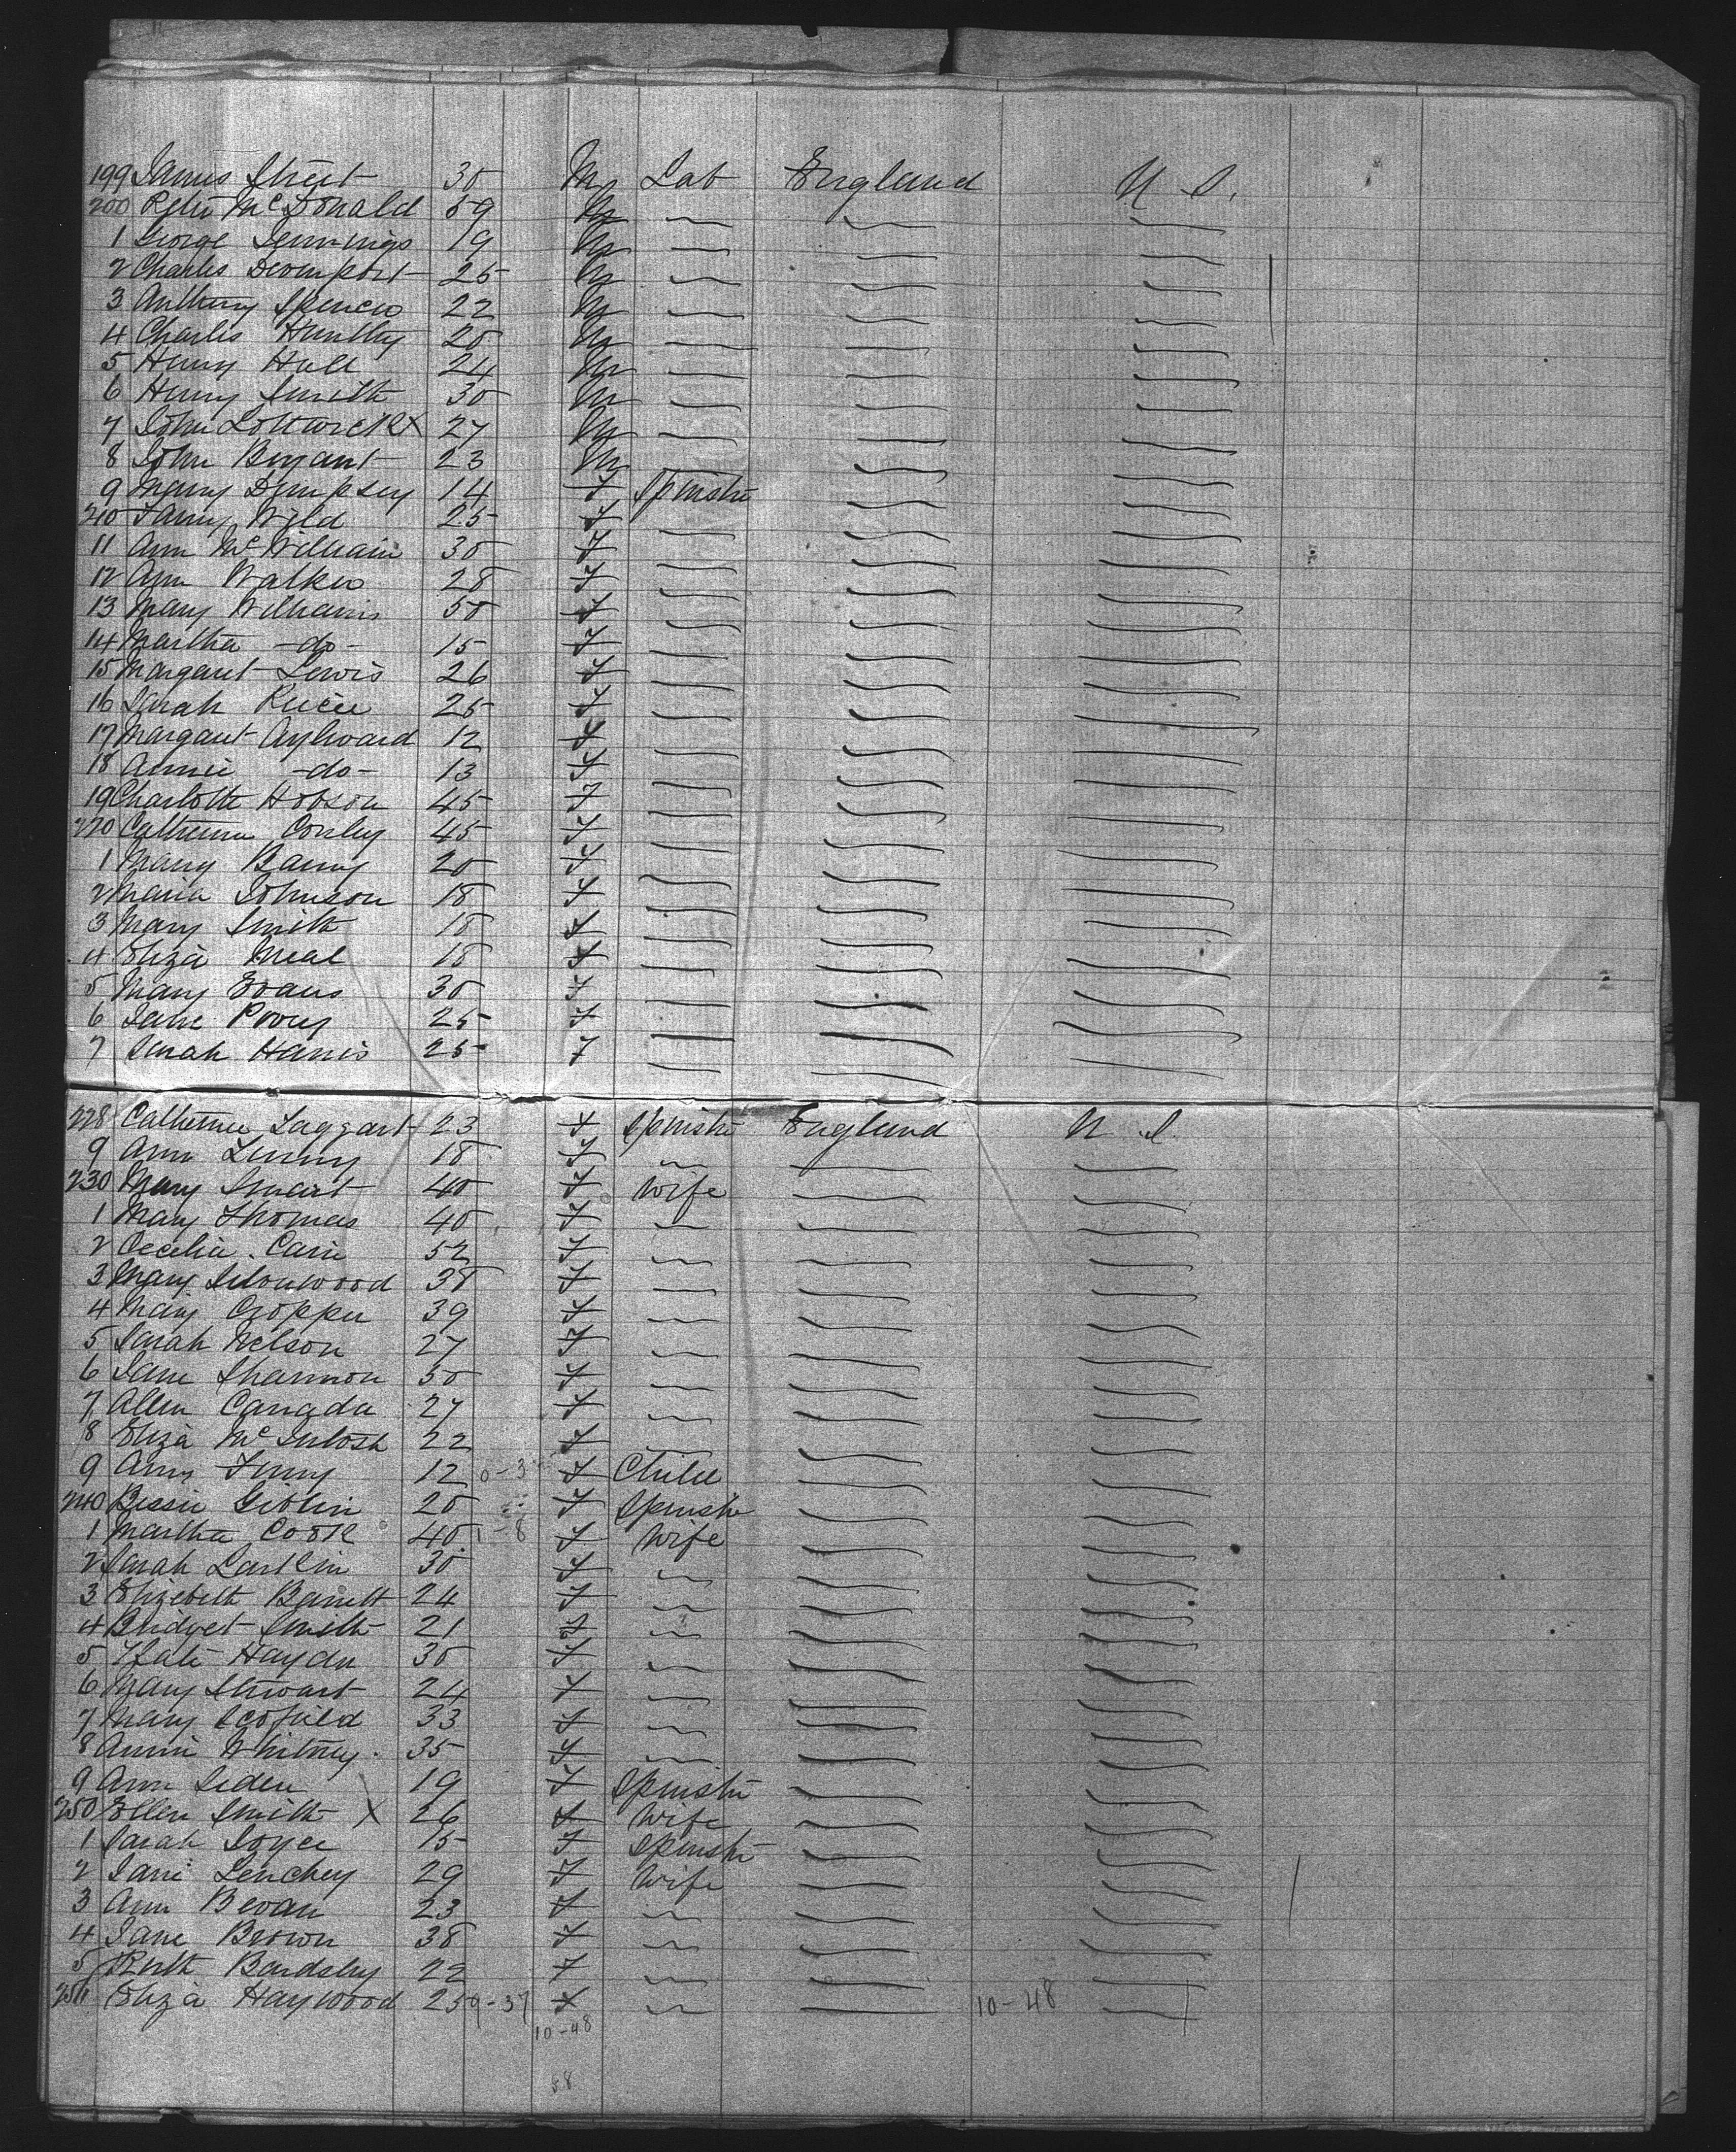 199 James Street 30 M Lab England U S.
200 Peter McDonald 59 M
1 George Jennings 19 M
2 Charles Devenport 25 M
3 Anthony Spencer 22 M
4 Charles Huntley 20 M
5 Henry Hall 24 M
6 Henry Smith 30 M
7 John X 27 M
8 John Bryant 23 M
9 Mary Dempsey 14 F Spinster
210 Fanny Wild 25 F
11 Ann McWilliam 30 F
12 Ann Walker 28 F
13 Mary Williams 50 F
14 Martha -do- 15 F
15 Margaret Lewis 26 F
16 Sarah 25 F
17 Margaret Aylward 12 F
18 Annie -do- 13 F
19 Charlotte Hobson 45 F
220 Catherine Conley 45 F
1 Mary Barry 20 F
2 Maria Johnson 18 F
3 Mary Smith 18 F
4 Eliza Neal 18 F
5 Mary Evans 30 F
6 Jane 25 F
7 Sarah Harris 25 F
228 Catherine Taggart 23 F Spinster England U S.
9 Ann 18 F
230 Mary Smart 40 F Wife
1 Mary Thomas 40 F
2 Cecelia Cain 52 F
3 Mary 38 F
4 Mary Cropper 39 F
5 Sarah Nelson 27 F
6 Jane Shannon 30 F
7 Allen Canada 27 F
8 Eliza McIntosh 22 F
9 Ann 12 F Child
240 Bessie Giblin 20 F Spinster
1 Martha Cook 40 1-8 F Wife
2 Sarah Larkin 30 F
3 Elizebeth Barrett 24 F
4 Bridget Smith 21 F
5 Kate Hayden 30 F
6 Mary Stewart 24 F
7 Mary Scofield 33 F
8 Annie Whitney 35 F
9 Ann 19 F Spinster
250 Ellen Smith X 26 F Wife
1 Sarah Joyce 15 F Spinster
2 Jane 29 F Wife
3 Ann Bevan 23 F
4 Jane Brown 38 F
5 Ruth Bardsley 22 F
256 Eliza Haywood 25 9-37 F 10-48
10-48
58